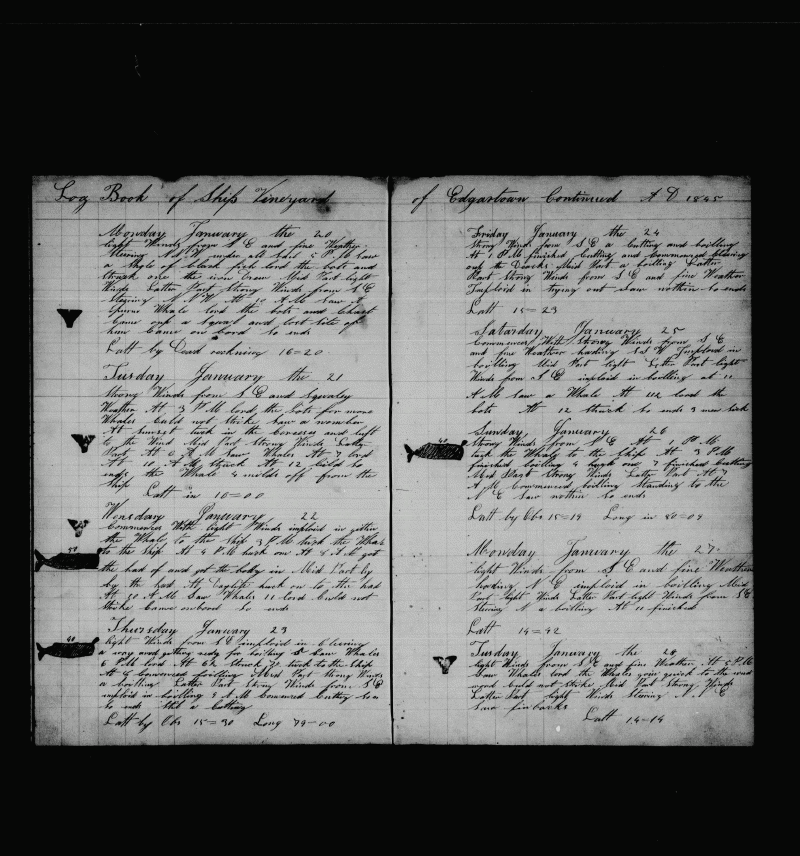 Log Book of Ship Vineyard
Monday January the 20
light Winds from S E and fine Weather
Stering N N W under all sail 5 P M saw
a Shole of black fish lord the bots and
struck one the iron Mid Part light
Winds Latter Part Strong Winds from S E
Stering N N W At 10 A M Saw A
Sperm Whale lord the bots and Chast
Came onbord so ends
Latt by Dead reckning 16=20
Tuesday January the 21
Strong Winds from S E and Squaley
Weather At 3 P M lord the bots for more
Whales Could not Strike Saw a nomber
At Sunset luft to
to the Wind Mid Part Strong Winds Latter
Part At 6 A M Saw Whales At 7 lord
At 10 A M Struck At 12 Cild so
ends the Whale 4 milds off from the
Ship
Latt in 16=00
Wensdary January 22
Commences With light Winds imploid in gitten
the Whale to the Ship 3 P M tuck the Whale
to the Ship At 4 P M tuck one At 8 A M got
the had of and got the body in Mid Part by
by the had At Daylite tuck on to the had
At 10 A M Saw Whales 11 lord Could not
Strike Came onbord So ends
50
Thursday January 23
light Winds from S E imploid in Clearing
a way and getting redy for boiling Saw Whales
6 P M lord At 6½ Struck took to the Ship
At 9 Commenced boilling Mid Part Strong Winds
a boilling Latter Part Strong Winds from S E
imploid in boilling 9 A M Commenced Cutting So a
So ends this a Cutting
40
Latt by Obs 15=30 Long 79=00
of Edgartown Continued A D 1845
Friday January the 24
Strong Winds from S E a Cutting and boilling
At 1 P M finished Cutting and Commenced Clearing
out the Decks Mid Part a boilling Latter
Part Strong Winds from S E and fine Weather
Imploid in trying out Saw nothin So ends
Latt 15=23
Satarday January 25
Commences With Strong Winds from S E
and fine Weather hading S S W Imploid in
boilling Mid Part light Latter Part light
Winds from S E imploid in boilling at 11
A M Saw a Whale At lord the
bots At 12 Struck So ends 3 men Sick
Sunday January 26
Strong Winds from S E At 1 P M
tuck the Whale to the Ship At 3 P M
finished boilling 4 huck one 7 finished Cutting
Mid Part Strong Winds Latter Part At 7
A M Commenced boilling Standing to the
N E Saw nothin So ends
40
Latt by Obs 15=19 Long in 80=09
Monday January the 27
light Winds from S E and fine Weather
hading N E imploid in boilling Mid
Part light Winds Latter Part light Winds from S E
Stering N a boilling At 11 finished
Latt 14=42
Tusday January the 28
light Winds from S E and fine Weather At 5 P M
Saw Whales lord the Whales goin quick to the wind
ward Could not Strike Mid Part Strong Winds
Latter Part light Winds Stering N N E
Saw finbacks
Latt 14=14